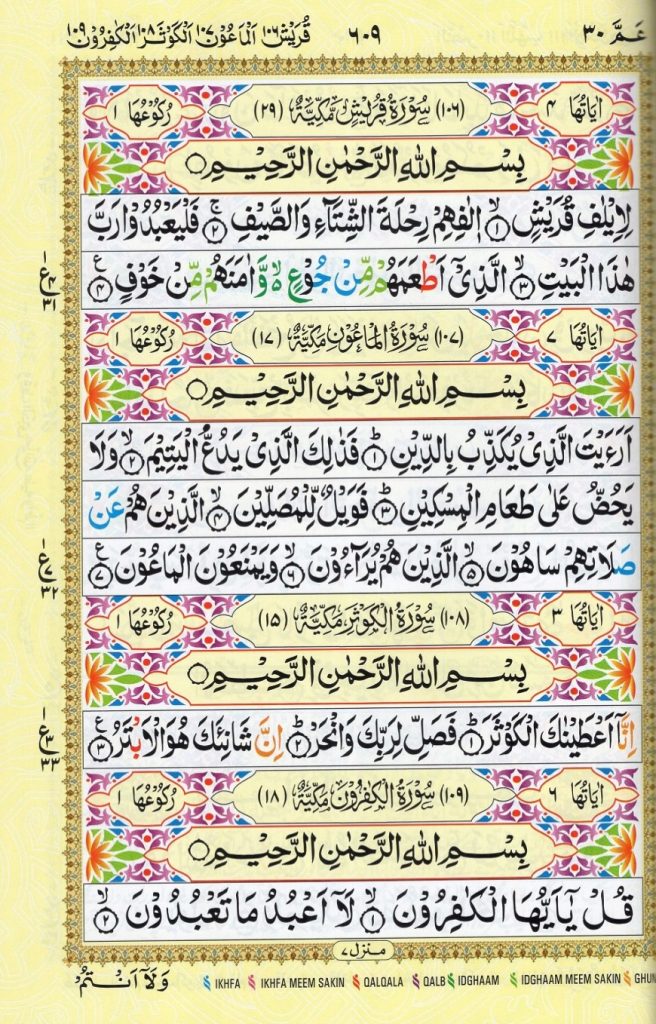 عَمَّ ٣٠
٦٠٩
قُرَيْش ١٠٦ اَلْمَاعُوْن ١٠٧ اَلْكَوْثَر ١٠٨ اَلْكٰفِرُوْن ١٠٩
اٰيَاتُهَا ٤ (١٠٦) سُوْرَةُ قُرَيْشٍ مَّكِّيَّةٌ (٢٩) رُكُوْعُهَا ١
بِسْمِ اللهِ الرَّحْمٰنِ الرَّحِيْمِ
لِاِيْلٰفِ قُرَيْشٍ ۙ١ اٖلٰفِهِمْ رِحْلَةَ الشِّتَآءِ وَالصَّيْفِ ۚ٢ فَلْيَعْبُدُوْا رَبَّ
هٰذَا الْبَيْتِ ۙ٣ الَّذِيْٓ اَطْعَمَهُمْ مِّنْ جُوْعٍ ۙ٥ وَّاٰمَنَهُمْ مِّنْ خَوْفٍ ٤
ع ٤ ٣١
اٰيَاتُهَا ٧ (١٠٧) سُوْرَةُ الْمَاعُوْنَ مَكِّيَّةٌ (١٧) رُكُوْعُهَا ١
بِسْمِ اللهِ الرَّحْمٰنِ الرَّحِيْمِ
اَرَءَيْتَ الَّذِيْ يُكَذِّبُ بِالدِّيْنِ ؕ١ فَذٰلِكَ الَّذِيْ يَدُعُّ الْيَتِيْمَ ۙ٢ وَلَا
يَحُضُّ عَلٰى طَعَامِ الْمِسْكِيْنِ ؕ٣ فَوَيْلٌ لِّلْمُصَلِّيْنَ ۙ٤ الَّذِيْنَ هُمْ عَنْ
صَلَاتِهِمْ سَاهُوْنَ ۙ٥ الَّذِيْنَ هُمْ يُرَآءُوْنَ ۙ٦ وَيَمْنَعُوْنَ الْمَاعُوْنَ ٧
ع ٧ ٣٢
اٰيَاتُهَا ٣ (١٠٨) سُوْرَةُ الْكَوْثَرِ مَكِّيَّةٌ (١٥) رُكُوْعُهَا ١
بِسْمِ اللهِ الرَّحْمٰنِ الرَّحِيْمِ
اِنَّآ اَعْطَيْنٰكَ الْكَوْثَرَ ؕ١ فَصَلِّ لِرَبِّكَ وَانْحَرْ ؕ٢ اِنَّ شَانِئَكَ هُوَ الْاَبْتَرُ ٣
ع ٣ ٣٣
اٰيَاتُهَا ٦ (١٠٩) سُوْرَةُ الْكٰفِرُوْنَ مَكِّيَّةٌ (١٨) رُكُوْعُهَا ١
بِسْمِ اللهِ الرَّحْمٰنِ الرَّحِيْمِ
قُلْ يٰٓاَيُّهَا الْكٰفِرُوْنَ ۙ١ لَآ اَعْبُدُ مَا تَعْبُدُوْنَ ۙ٢
منزل ٧
وَلَآ اَنْتُمْ
IKHFA IKHFA MEEM SAKIN QALQALA QALB IDGHAAM IDGHAAM MEEM SAKIN GHUN